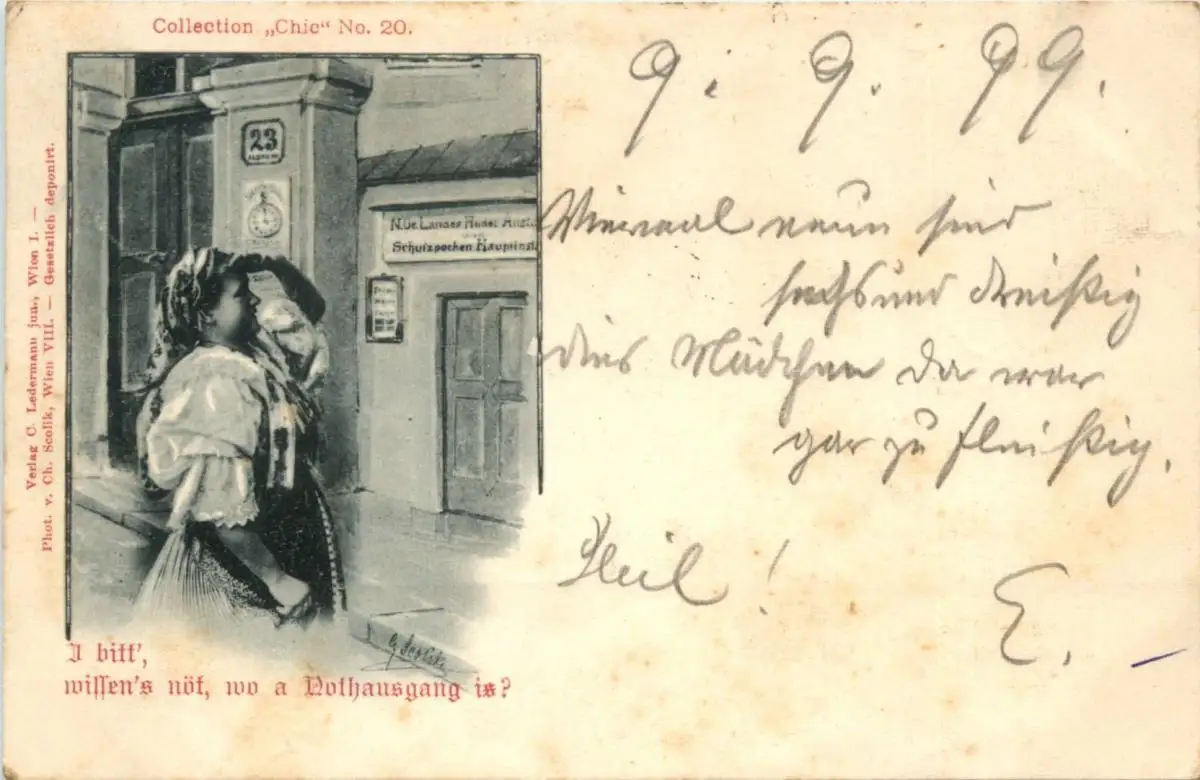 Collection „Chic“ No. 20.
Verlag C. Ledermann jun., Wien I. —
Phot. v. Ch. Scolik, Wien VIII. — Gesetzlich deponirt.
23
N.Oe. Landes
Schutzpocken Hauptinst.
I bitt',
wissen's nöt, wo a Nothausgang is?
9. 9. 99.
Viermal neun sind
sechsund dreißig
dies Mädchen da war
gar zu fleißig.
Heil!
E.